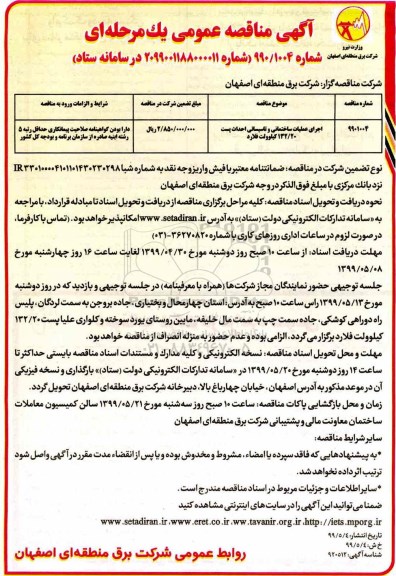 آگهی مناقصه عمومی یك‌مرحله‌ای
شماره ۹۹۰/۱۰۰۴ (شماره ۲۰۹۹۰۰۱۱۸۸۰۰۰۰۱۱ در سامانه ستاد)
وزارت نیرو
شرکت برق منطقه‌ای اصفهان
شرکت مناقصه‌گزار: شرکت برق منطقه‌ای اصفهان
شماره مناقصه
موضوع مناقصه
مبلغ تضمین شرکت در مناقصه
شرایط و الزامات ورود به مناقصه
۹۹۰۱۰۰۴
اجرای عملیات ساختمانی و تاسیساتی احداث پست ۱۳۲/۲۰ کیلوولت فلارد
۲/۸۵۰/۰۰۰/۰۰۰ ریال
دارا بودن گواهینامه صلاحیت پیمانکاری حداقل رتبه ۵ رشته ابنیه صادره از سازمان برنامه و بودجه کل کشور
نوع تضمین شرکت در مناقصه: ضمانتنامه معتبر یا فیش واریز وجه نقد به شماره شبا IR۳۳۰۱۰۰۰۰۴۱۰۱۱۰۱۴۳۰۲۳۰۲۹۸
نزد بانك مرکزی با مبلغ فوق‌الذکر در وجه شرکت برق منطقه‌ای اصفهان
نحوه دریافت و تحویل اسناد مناقصه: کلیه مراحل برگزاری مناقصه از دریافت و تحویل اسناد تا مبادله قرارداد، با مراجعه
به «سامانه تدارکات الکترونیکی دولت (ستاد)» به آدرس www.setadiran.ir امکانپذیر خواهد بود. (تماس با کارفرما،
در صورت لزوم در ساعات اداری روزهای کاری با شماره ۳۶۲۷۰۸۲۰-۰۳۱)
مهلت دریافت اسناد: از ساعت ۱۰ صبح روز دوشنبه مورخ ۱۳۹۹/۰۴/۳۰ لغایت ساعت ۱۶ روز چهارشنبه مورخ
۱۳۹۹/۰۵/۰۸
جلسه توجیهی حضور نمایندگان مجاز شرکت‌ها (همراه با معرفینامه) در جلسه توجیهی و بازدید که در روز دوشنبه
مورخ ۱۳۹۹/۰۵/۱۳ راس ساعت ۱۰ صبح به آدرس: استان چهارمحال و بختیاری، جاده بروجن به سمت لردگان، پلیس
راه دوراهی کوشکی، جاده سمت چپ به سمت مال خلیفه، مابین روستای بورد سوخته و کلواری علیا پست ۱۳۲/۲۰
کیلوولت فلارد برگزار می‌گردد، الزامی بوده و عدم حضور به منزله انصراف از مناقصه خواهد بود.
مهلت و محل تحویل اسناد مناقصه: نسخه الکترونیکی و کلیه مدارك و مستندات اسناد مناقصه بایستی حداکثر تا
ساعت ۱۴ روز دوشنبه مورخ ۱۳۹۹/۰۵/۲۰ در «سامانه تدارکات الکترونیکی دولت (ستاد)» بارگذاری و نسخه فیزیکی
آن در موعد مذکور به آدرس اصفهان، خیابان چهارباغ بالا، دبیرخانه شرکت برق منطقه‌ای اصفهان تحویل گردد.
زمان و محل بازگشایی پاکات مناقصه: ساعت ۱۰ صبح روز سه‌شنبه مورخ ۱۳۹۹/۰۵/۲۱ سالن کمیسیون معاملات
ساختمان معاونت مالی و پشتیبانی شرکت برق منطقه‌ای اصفهان
سایر شرایط مناقصه:
*به پیشنهادهایی که فاقد سپرده یا امضاء، مشروط و مخدوش بوده و یا پس از انقضاء مدت مقرر در آگهی واصل شود
ترتیب اثر داده نخواهد شد.
*سایر اطلاعات و جزئیات مربوط در اسناد مناقصه مندرج است.
ضمنا می‌توانید این آگهی را در سایت‌های اینترنتی مشاهده کنید
www.setadiran.ir www.eret.co.ir www.tavanir.org.ir http://iets.mporg.ir
تاریخ انتشار: ۹۹/۵/۴
خ ش: ۹۹/۵/۴
شناسه آگهی: ۹۲۰۵۱۲
روابط عمومی شرکت برق منطقه‌ای اصفهان